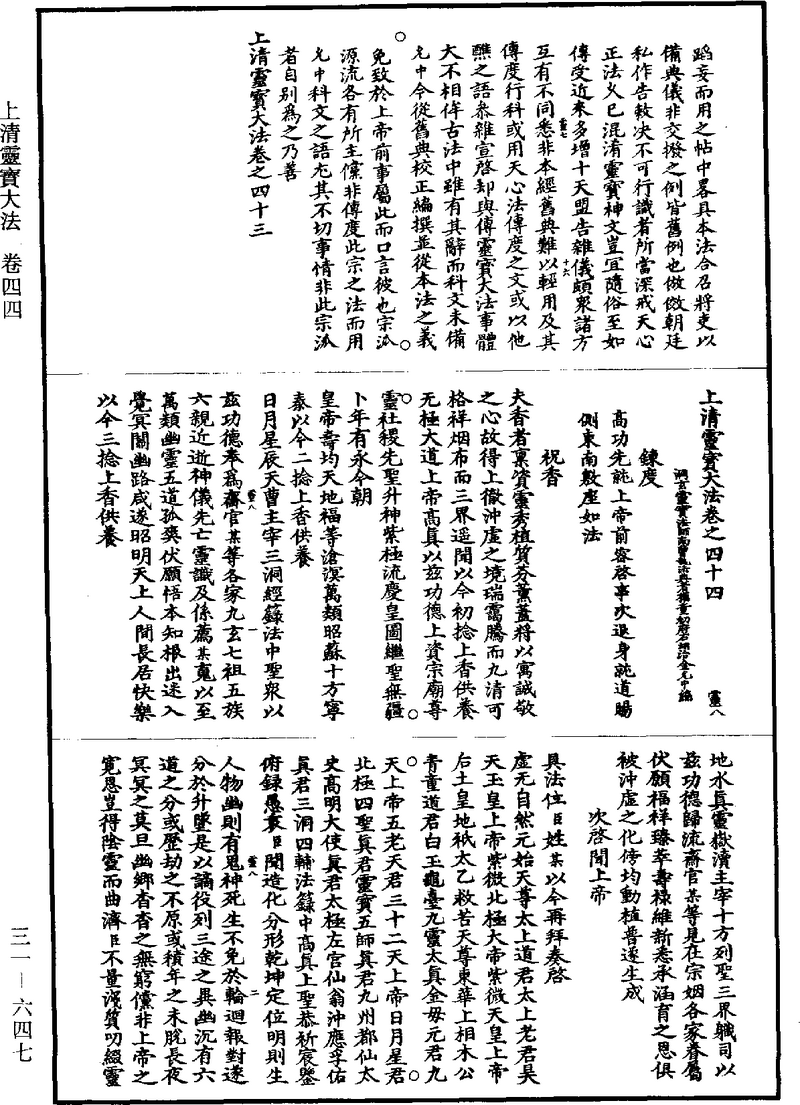 上清靈寶大法 卷四四
三一—六四七
蹈妄而用之帖中畧具本法合召將吏以
備典儀非交撥之例皆舊例也倣傚朝廷
私作告敕决不可行識者所當深戒天心
正法乂已混淆靈寶神文豈宜隨俗至如
傳受近來多增十天盟告雜儀頗衆諸方
互有不同悉非本經舊典難以輕用及其
傳度行科或用天心法傳度之文或以他
醮之語叅雜宣啓却與傳靈寶大法事體
大不相侔古法中雖有其辭而科文未備
允中今從舊典校正編撰並從本法之義
免致於上帝前事屬此而口言彼也宗派
源流各有所主儻非傳度此宗之法而用
允中科文之語尤其不切事情非此宗派
者自别爲之乃善
上清靈寶大法卷之四十三
上清靈寶大法卷之四十四
靈八
洞玄靈寶法師南曹執法典者權童初府右翊治金允中編
鍊度
高功先詣上帝前容啓事次退身詣道賜
側東南敷座如法
祝香
夫香者禀質靈秀植質芬薰蓋將以寓誠敬
之心故得上徹沖虛之境瑞靄騰而九清可
格祥烟布而三界遥聞以今初捻上香供養
无極大道上帝高真以兹功德上資宗廟尊
靈社稷先聖升神紫極流慶皇圖繼聖無疆
卜年有永今朝
皇帝壽均天地福等滄溟萬類昭蘇十方寧
泰以今二捻上香供養
日月星辰天曹主宰三洞經籙法中聖衆以
兹功德奉爲齋官某等各家九玄七祖五族
六親近逝神儀先亡靈識及係薦某蒐以至
萬類幽靈五道孤爽伏願悟本知根出迷入
覺冥關幽路咸遂昭明天上人間長居快樂
以今三捻上香供養
地水真靈嶽瀆主宰十方列聖三界軄司以
兹功德歸流齋官某等見在宗姻各家眷屬
伏願福祥臻萃壽祿維新悉承涵育之恩俱
被沖虛之化傍均動植普遂生成
次啓聞上帝
具法位臣姓某以今再拜奏啓
虛无自然元始天尊太上道君太上老君昊
天玉皇上帝紫微北極大帝紫微天皇上帝
后土皇地祇太乙救苦天尊東華上相木公
青童道君白玉龜臺九靈太真金母元君九
天上帝五老天君三十二天上帝日月星君
北極四聖真君靈寶五師真君九州都仙太
史高明大使真君太極左宫仙翁沖應孚佑
真君三洞四輔法籙中高真上聖恭祈宸鑒
俯録愚衷臣聞造化分形乾坤定位明則生
人物幽則有鬼神死生不免於輪迴報對遂
分於升墜是以謫役列三途之異幽沉有六
道之分或歷劫之不原或積年之未脫長夜
冥冥之莫旦幽鄉杳杳之無窮儻非上帝之
寛恩豈得陰靈而曲濟臣不量淺質叨綴靈